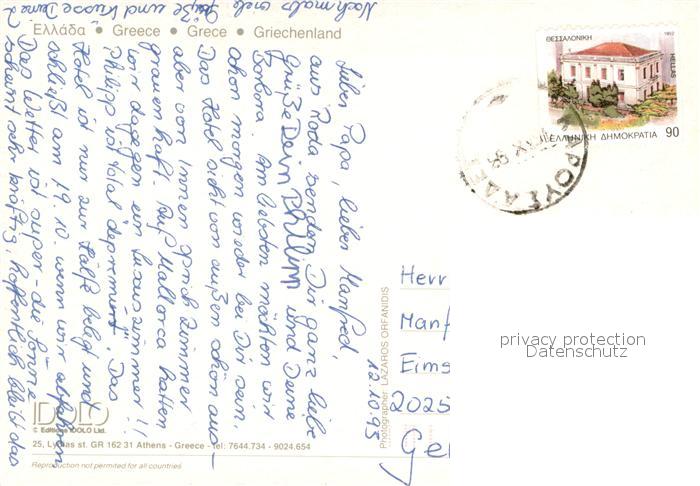 Nochmals viele Grüße und Küsse Deine B
Ελλάδα • Greece • Grece • Griechenland
Lieber Papa, lieber Manfred,
aus Roda senden Dir ganz liebe
Grüße Dein Philipp und Deine
Barbara. Am liebsten möchten wir
schon morgen wieder bei Dir sein.
Das Hotel sieht von außen schön aus -
aber von innen sprich Zimmer
grauenhaft. Auf Mallorca hatten
wir dagegen ein Luxuszimmer!!
Philipp ist total deprimiert. Das
Hotel ist nur zur Hälfte belegt und
schließt am 19.10. wenn wir abfahren
Das Wetter ist super - die Sonne
scheint sehr kräftig, hoffentlich bleibt das
12.10.93
ΘΕΣΣΑΛΟΝΙΚΗ
1992
HELLAS
ΕΛΛΗΝΙΚΗ ΔΗΜΟΚΡΑΤΙΑ 90
Herr
Manf
Eims
2025
Ge
privacy protection
Datenschutz
Photographer LAZAROS ORFANIDIS
IDOLO
© Editions IDOLO Ltd.
25, Lydias st. GR 162 31 Athens - Greece - Tel: 7644.734 - 9024.654
Reproduction not permited for all countries